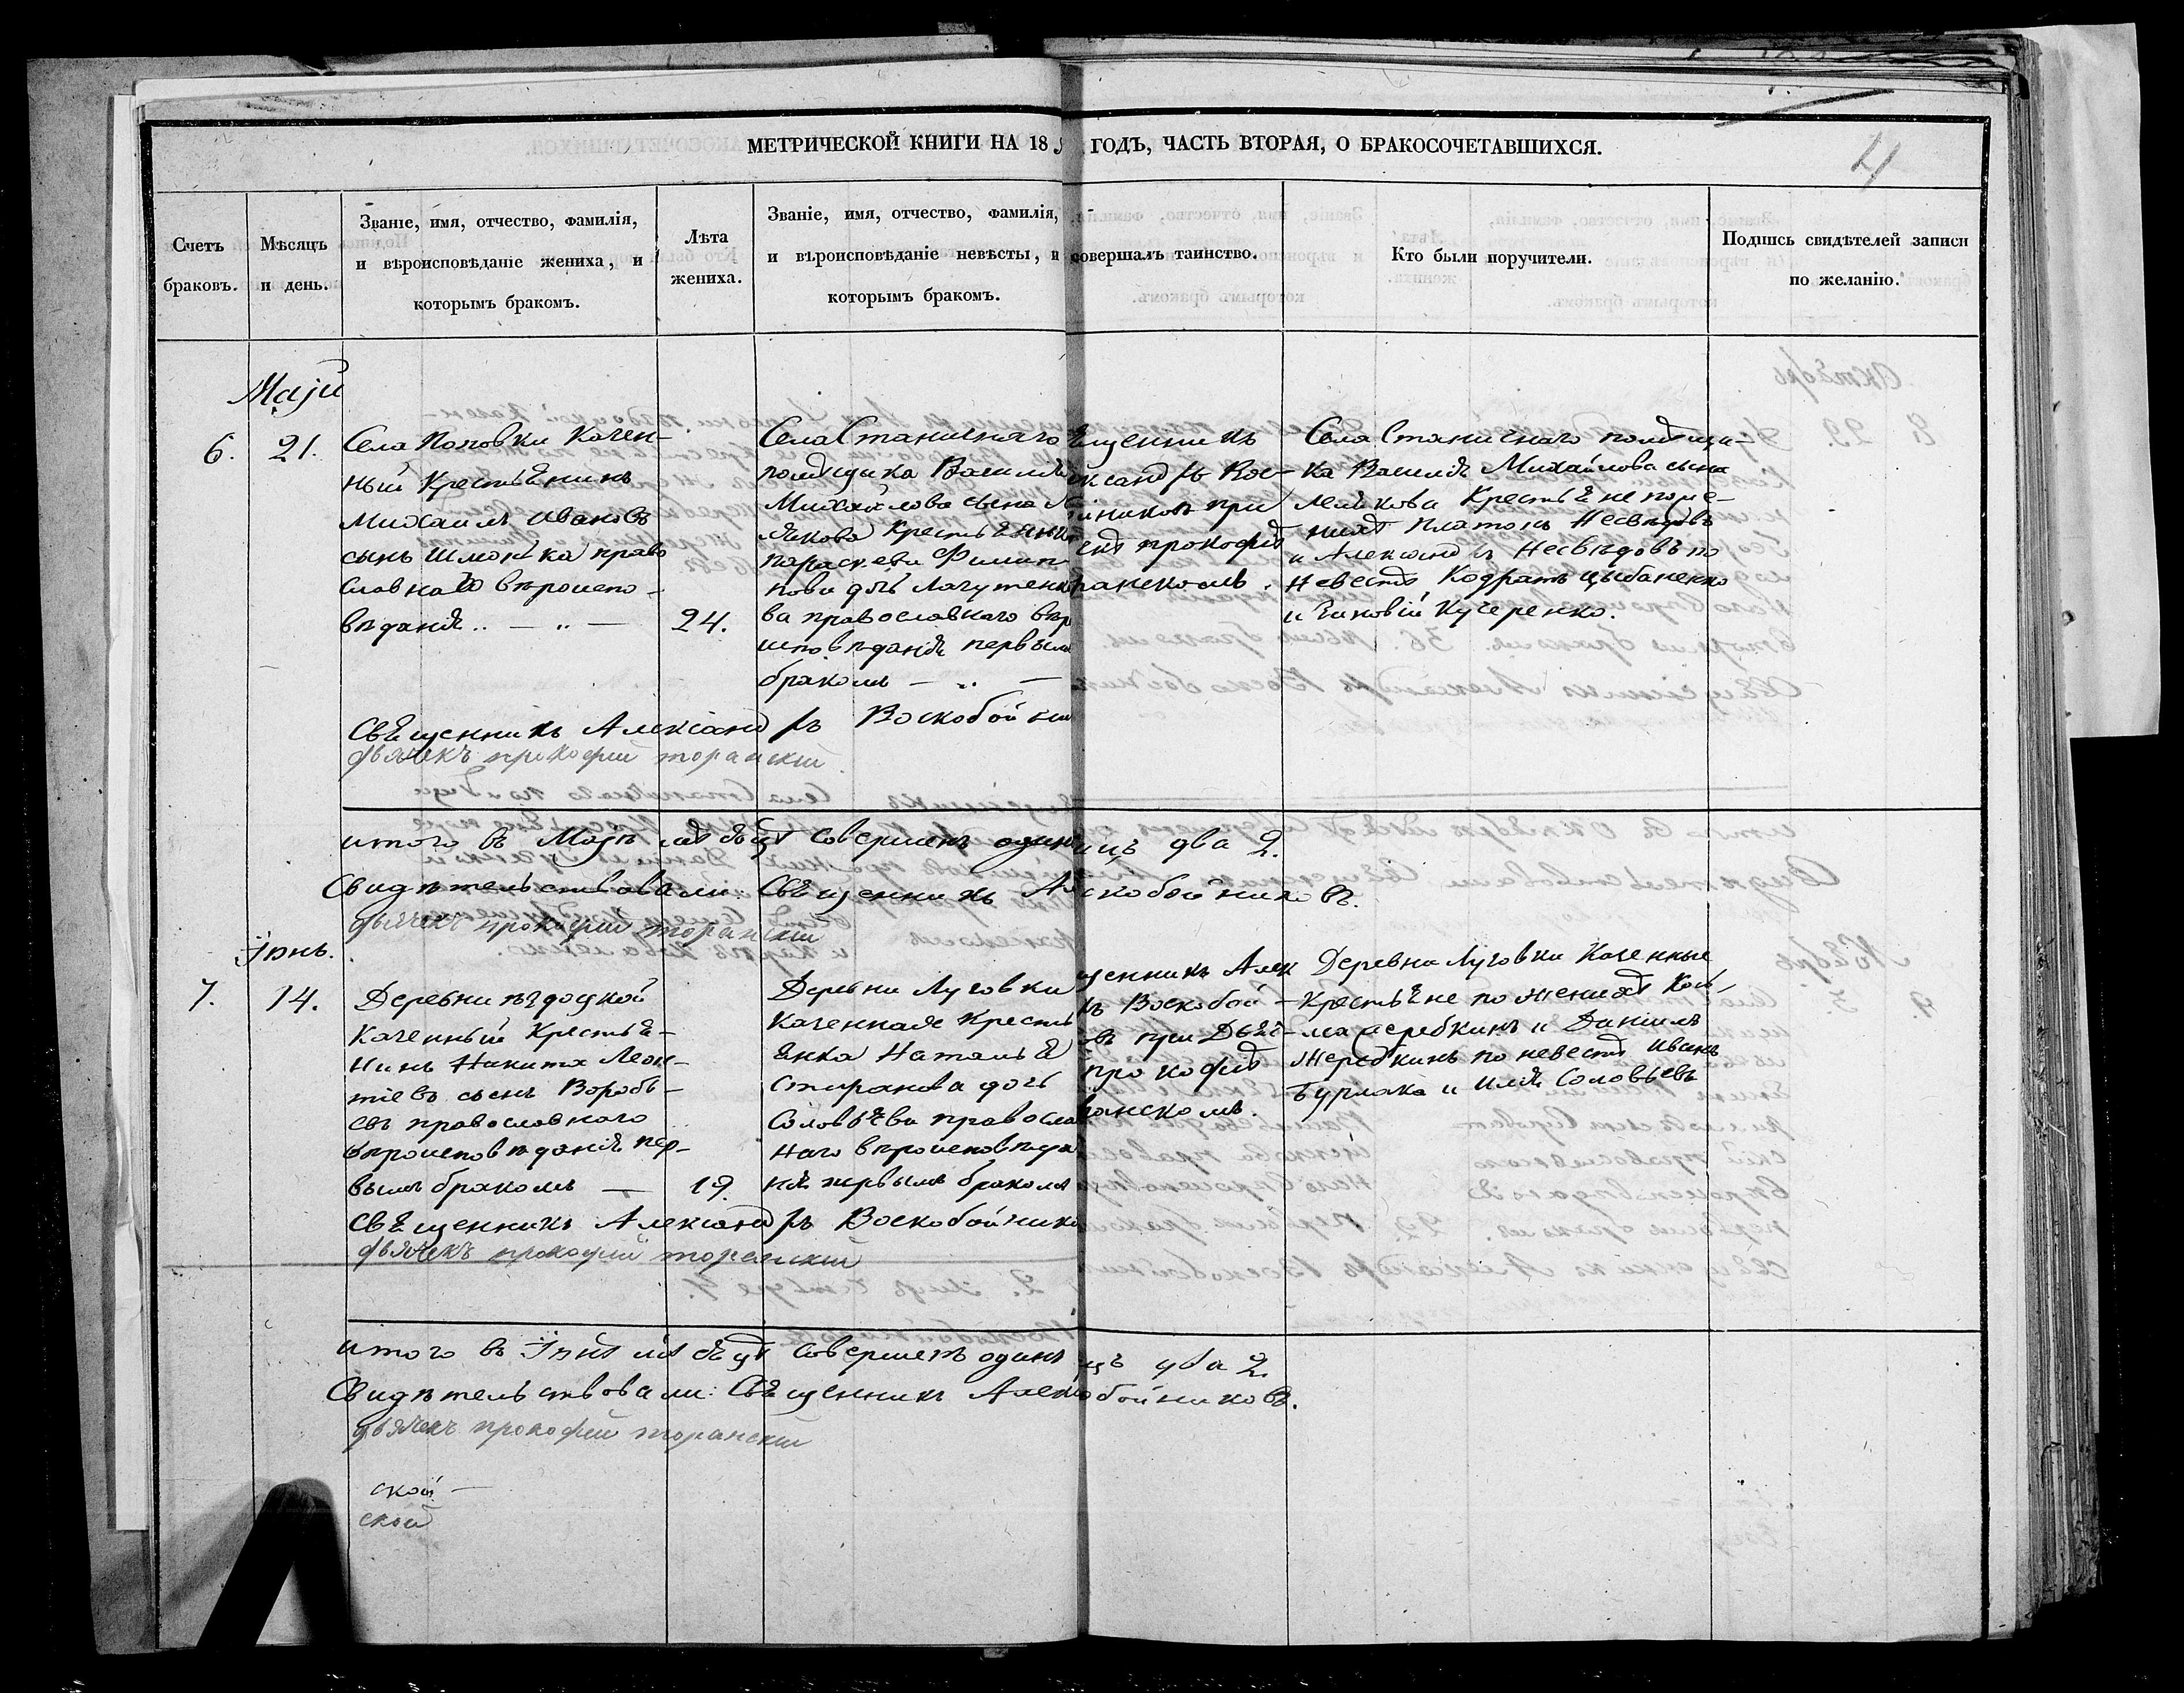 МЕТРИЧЕСКОЙ КНИГИ НА 18 ГОДЪ, ЧАСТЬ ВТОРАЯ, О БРАКОСОЧЕТАВШИХСЯ.
4
Счетъ
браковъ.
Мѣсяцъ
и день.
Званіе, имя, отчество, фамилія,
и вѣроисповѣданіе жениха, и
которымъ бракомъ.
Лѣта
жениха.
Званіе, имя, отчество, фамилія,
и вѣроисповѣданіе невѣсты, и
которымъ бракомъ.
совершалъ таинство.
Кто были поручители.
Подпись свидѣтелей записи
по желанію.
Маій
6. 21.
Села Поповки Казен-
ный Крестьянинъ
Михаилъ Ивановъ
сынъ Шмонька право
славнаго вѣроиспо-
вѣданія
24.
Села Станичнаго
помѣщика Василія
Михайлова сына
Крестьянка
Параскева Филип
пова дочь Лагутенко
ва православнаго вѣр
исповѣданія первымъ
бракомъ
ященникъ
ександръ Вос-
йниковъ при
Прокофіѣ
ранскомъ.
Села Станичнаго помѣщи-
ка Василія Михайлова сына
Крестьяне по же-
нихѣ Платонъ Несвѣдовъ
и Александръ Несвѣдовъ по
невестѣ Кодратъ Цыбаненко
и Зиновій Кучеренко.
Священникъ Александръ Воскобойник
дьячекъ прокофий торанский
итого въ Маѣ мѣсяцѣ совершенъ одинъ
ицъ два 2.
Свидѣтельствовали: Священникъ Ал
скобойниковъ.
дьячекъ прокофий торанский
Іюнь.
7. 14.
Деревни
Казенный Крестья-
нинъ Никита Леон-
тіевъ сынъ Воробь-
евъ православнаго
вѣроисповѣданія пер-
вымъ бракомъ
19.
Деревни Луговки
Казенная Кресть
янка Наталья
дочь
Соловьева правосла
наго вѣроисповѣда
нія первымъ бракомъ
щенникъ Алек
ръ Воскобой-
въ при Дьяч-
Прокофіѣ
ранскомъ.
Деревни Луговки Казенные
Крестьяне по женихѣ Козь-
ма Жеребкинъ и Даніилъ
Жеребкинъ по невестѣ Иванъ
Бурлака и Илья Соловьевъ
Священникъ Александръ Воскобойнико
дьячекъ прокофий торанский
итого въ Іюнѣ мѣсяцѣ совершенъ одинъ
цъ два 2.
Свидѣтельствовали: Священникъ Алек
обойниковъ.
дьячекъ прокофий торанский
ской
ской